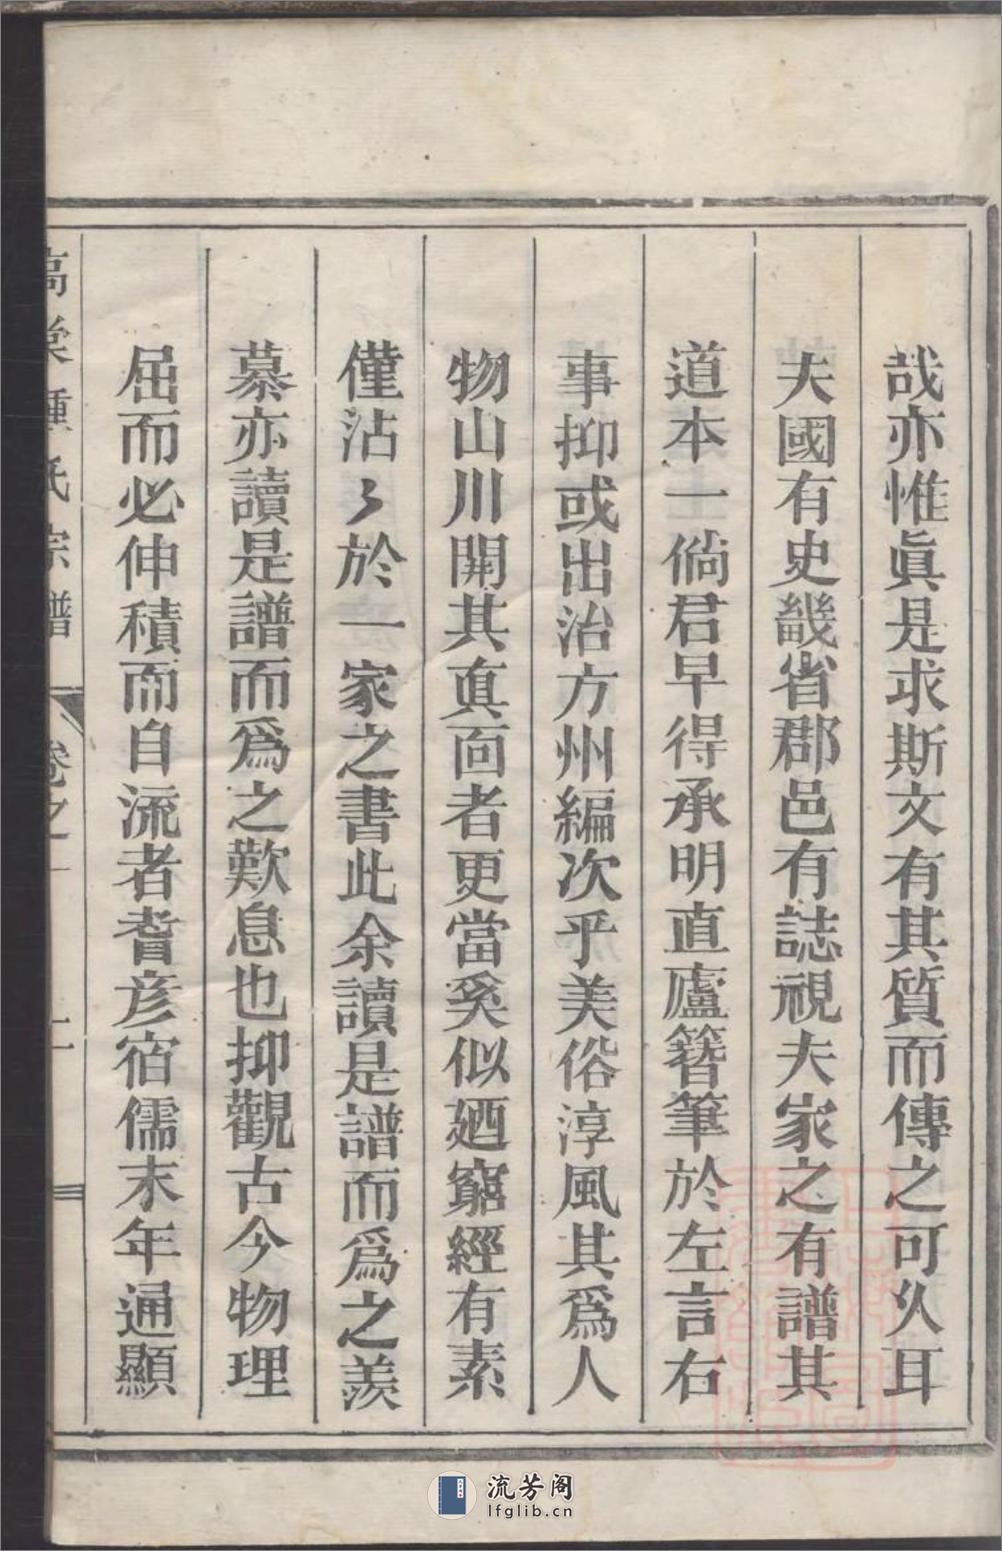 哉亦惟眞是求斯文有其質而傳之可久耳
夫國有史畿省郡邑有誌視夫家之有譜其
道本一倘君早得承明直廬簪筆於左言右
事抑或出治方州編次乎美俗淳風其爲人
物山川開其眞面者更當奚似廼窮經有素
僅沾〻於一家之書此余讀是譜而爲之羨
慕亦讀是譜而爲之歎息也抑觀古今物理
屈而必伸積而自流者耆彦宿儒末年通顯
高棠鍾氏宗譜 卷之一 二
流芳阁
lfglib.cn